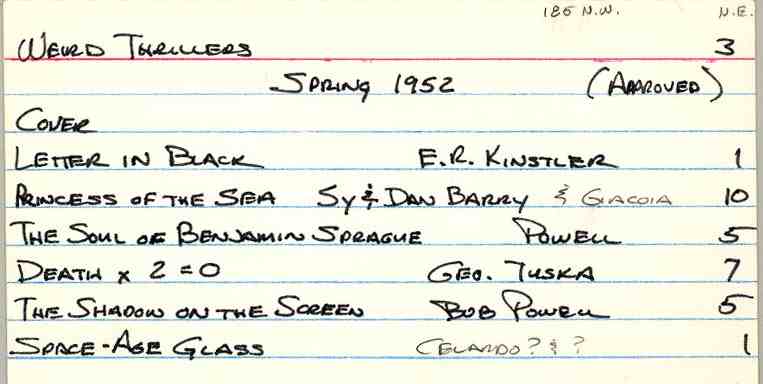 186 N.W. N.E.
WEIRD THRILLERS 3
SPRING 1952 (APPROVED)
COVER
LETTER IN BLACK E.R. KINSTLER 1
PRINCESS OF THE SEA SY & DAN BARRY & GIACOIA 10
THE SOUL OF BENJAMIN SPRAGUE POWELL 5
DEATH x 2 = 0 GEO. TUSKA 7
THE SHADOW ON THE SCREEN BOB POWELL 5
SPACE-AGE GLASS CELARDO? & ? 1